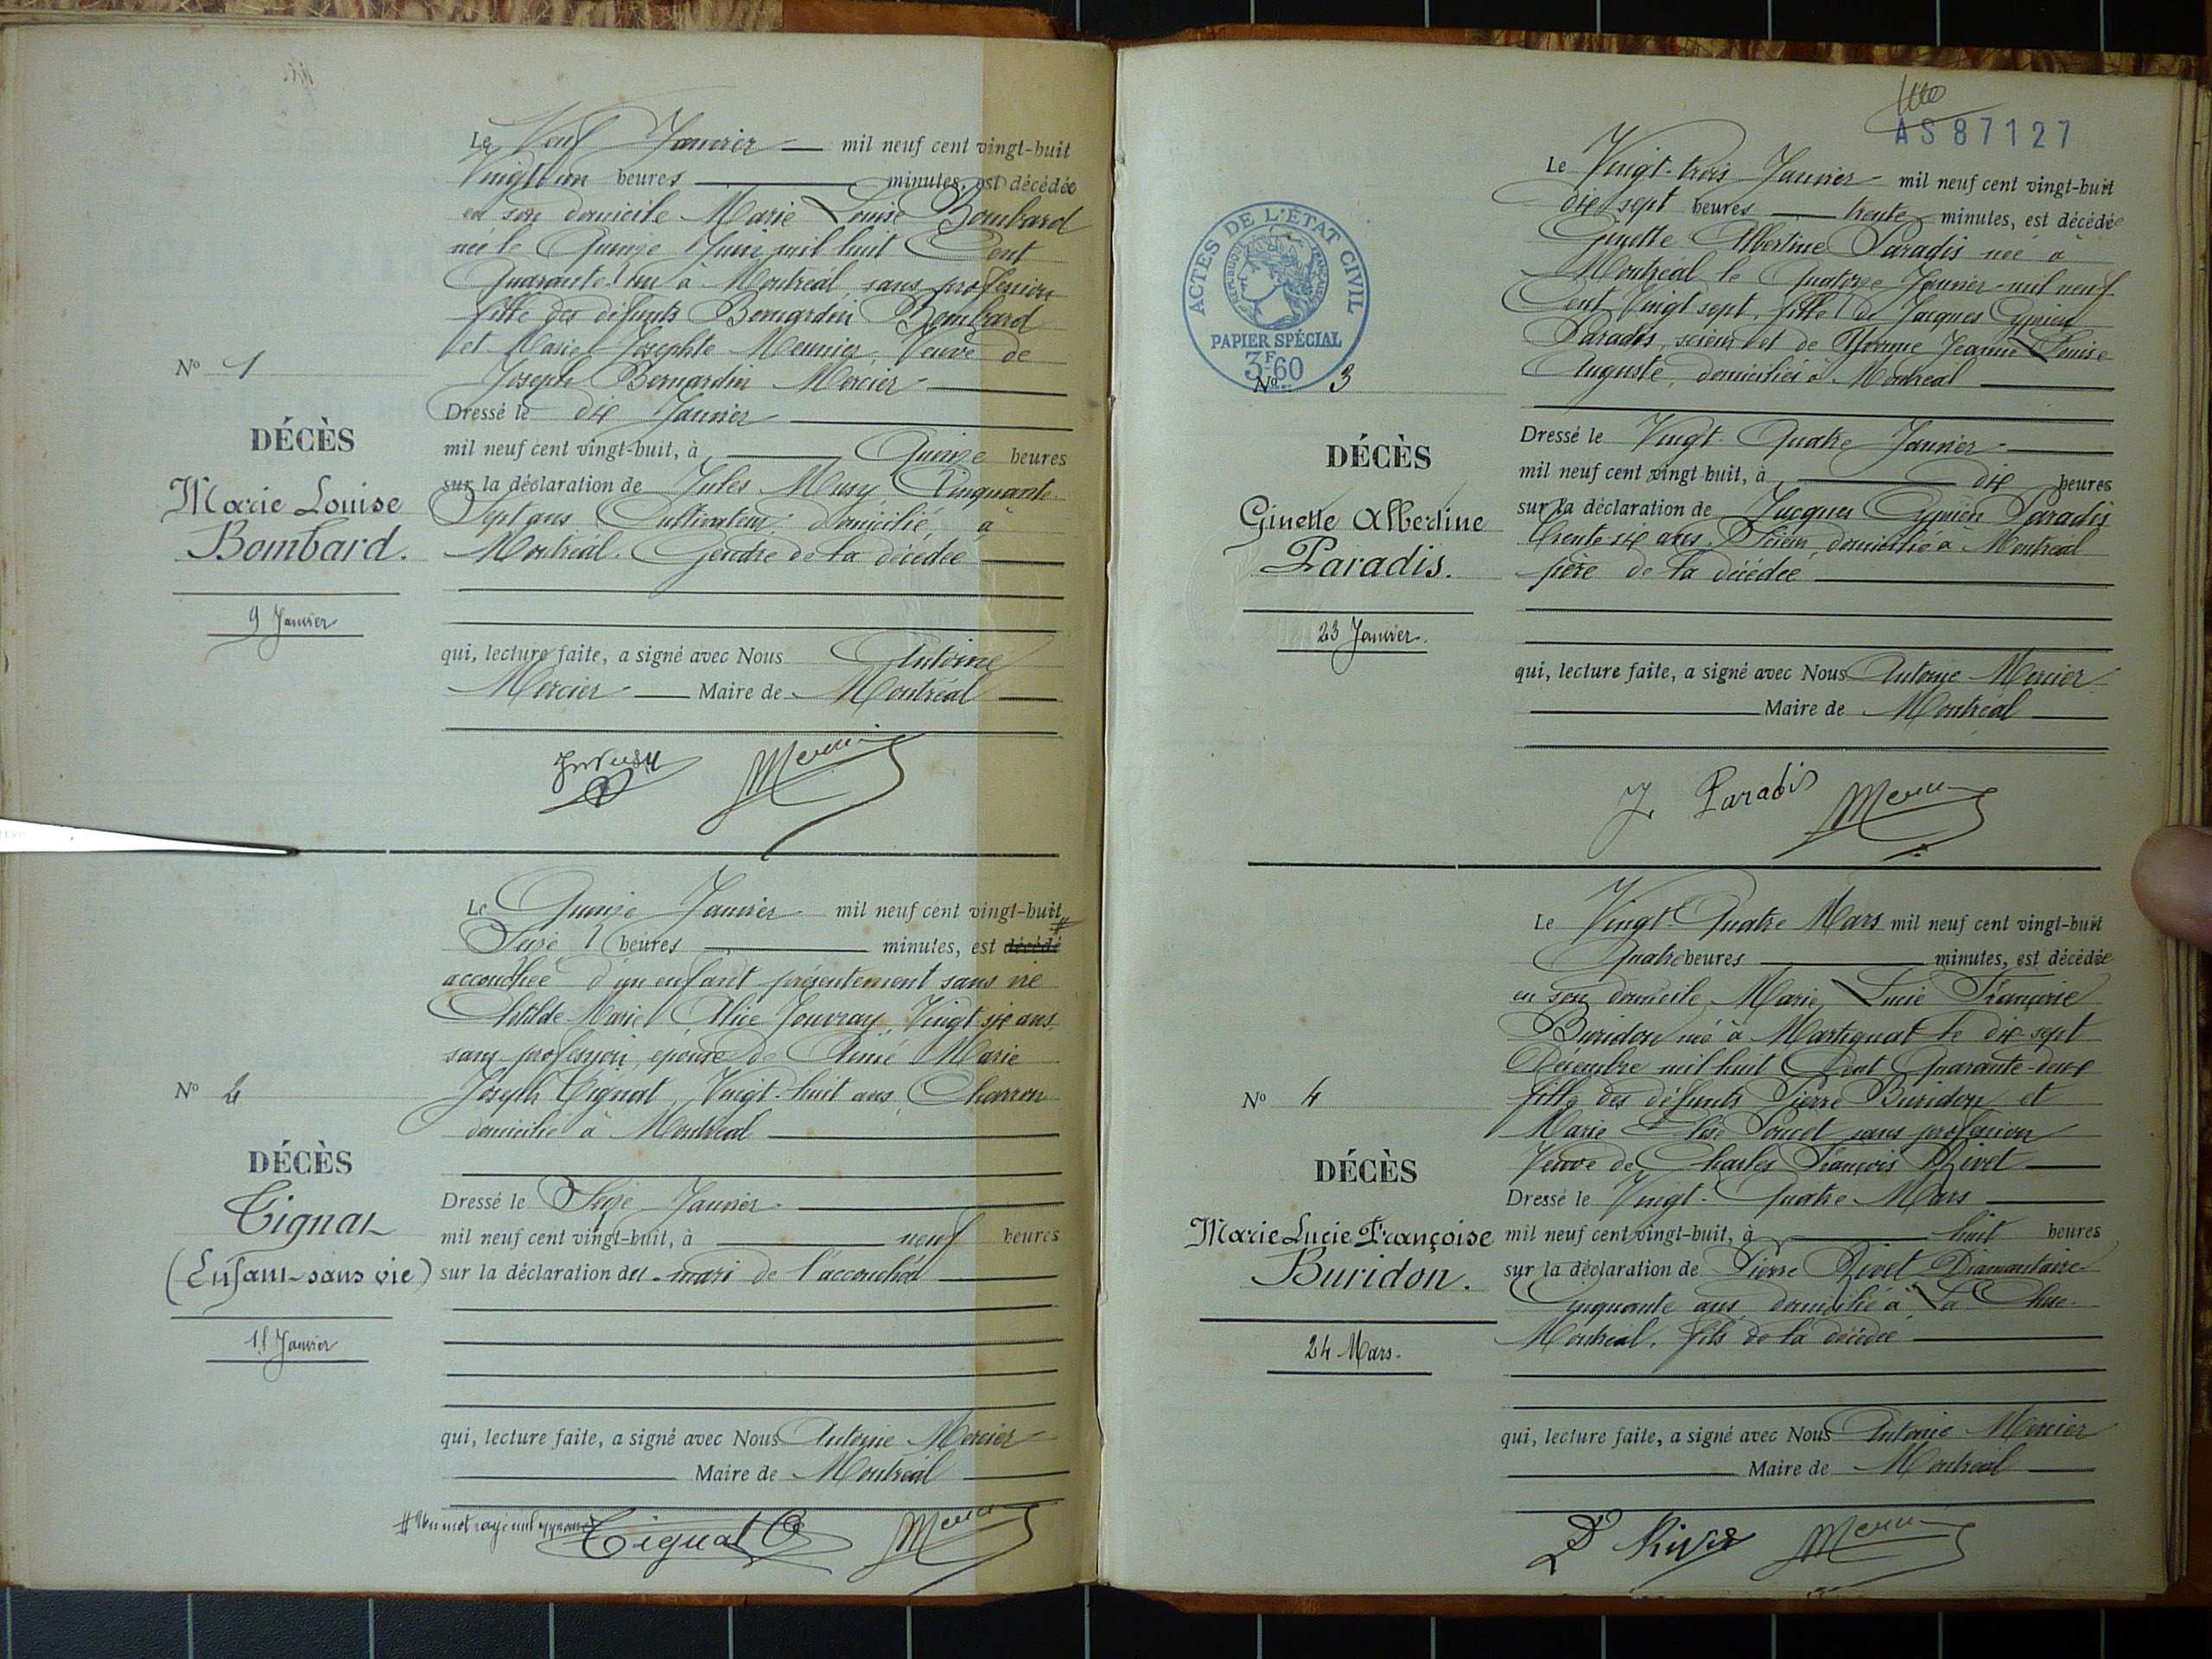 Le Neuf Janvier mil neuf cent vingt-huit
Vingt un heures minutes, est décédée
en son domicile Marie Louise Bombard
née le Quinze Juin mil huit Cent
Quarante Un à Montréal, sans profession
fille des défunts Bernardin Bombard
et Marie Josephte Meunier, Veuve de
Joseph Bernardin Mercier
Nº 1
DÉCÈS
Marie Louise
Bombard.
9 Janvier
Dressé le dix Janvier
mil neuf cent vingt-huit, à Quinze heures
sur la déclaration de Jules Musy, Cinquante
Sept ans, Cultivateur, domicilié à
Montréal. Gendre de la décédée
qui, lecture faite, a signé avec Nous Antoine
Mercier Maire de Montréal
Le Quinze Janvier mil neuf cent vingt-huit #
Seize heures minutes, est décédé
accouchée d'un enfant présentement sans vie
Clotilde Marie Alice Jouvray, Vingt six ans
sans profession, épouse de Aimé Marie
Joseph Tignat, Vingt-huit ans, Charron
domicilié à Montréal
Nº 2
DÉCÈS
Tignat
(Enfant sans vie)
15 Janvier
Dressé le Seize Janvier
mil neuf cent vingt-huit, à neuf heures
sur la déclaration du mari de l'accouchée
qui, lecture faite, a signé avec Nous Antoine Mercier
Maire de Montréal
# Un mot rayé nul
Tignat
AS87127
Le Vingt-trois Janvier mil neuf cent vingt-huit
dix sept heures trente minutes, est décédée
Ginette Albertine Paradis née à
Montréal le Quatorze Janvier mil neuf
Cent Vingt sept, fille de Jacques Cyprien
Paradis, scieur et de Yvonne Jeanne Louise
Auguste, domiciliés à Montréal
ACTES DE L'ÉTAT CIVIL
RÉPUBLIQUE FRANÇAISE
PAPIER SPÉCIAL
3F60
Nº 3
DÉCÈS
Ginette Albertine
Paradis.
23 Janvier.
Dressé le Vingt Quatre Janvier
mil neuf cent vingt huit, à dix heures
sur la déclaration de Jacques Cyprien Paradis
trente six ans, Scieur, domicilié à Montréal
père de la décédée
qui, lecture faite, a signé avec Nous Antoine Mercier
Maire de Montréal
J. Paradis
Le Vingt Quatre Mars mil neuf cent vingt-huit
Quatre heures minutes, est décédée
en son domicile Marie Lucie Françoise
Buridon née à Martignat le dix-sept
Décembre mil huit Cent Quarante-deux
fille des défunts Pierre Buridon et
Marie Elise Poncet sans profession
Veuve de Charles François Rivet
Nº 4
DÉCÈS
Marie Lucie Françoise
Buridon.
24 Mars.
Dressé le Vingt-Quatre Mars
mil neuf cent vingt-huit, à huit heures
sur la déclaration de Pierre Rivet Diamantaire
Cinquante ans domicilié à La Cluse
Montréal. fils de la décédée
qui, lecture faite, a signé avec Nous Antoine Mercier
Maire de Montréal